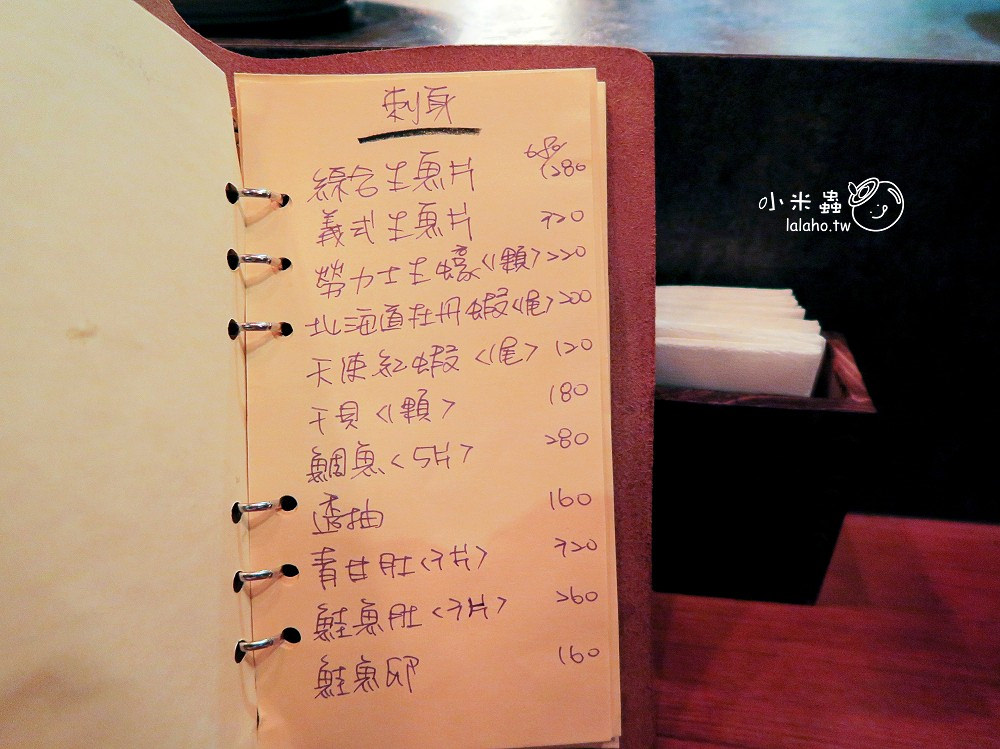 刺身
綜合生魚片 680 1280
義式生魚片 320
勞力士生蠔<1顆> 220
北海道牡丹蝦<1尾> 200
天使紅蝦<1尾> 120
干貝<1顆> 180
鯛魚<5片> 280
透抽 160
青甘肚<3片> 320
鮭魚肚<3片> 260
鮭魚卵 160
小米蟲
lalaho.tw